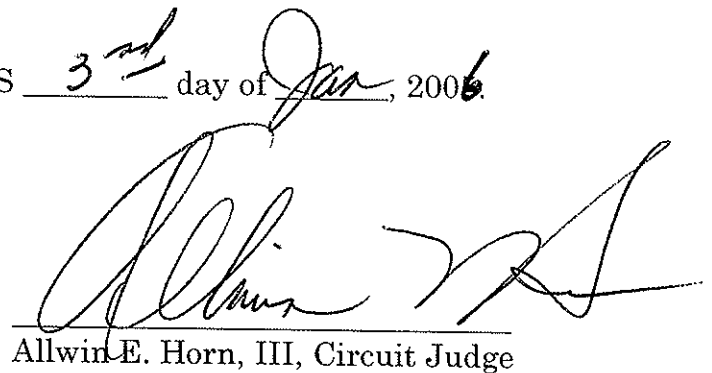 S 3rd day of Jan, 2006.
Allwin E. Horn, III, Circuit Judge